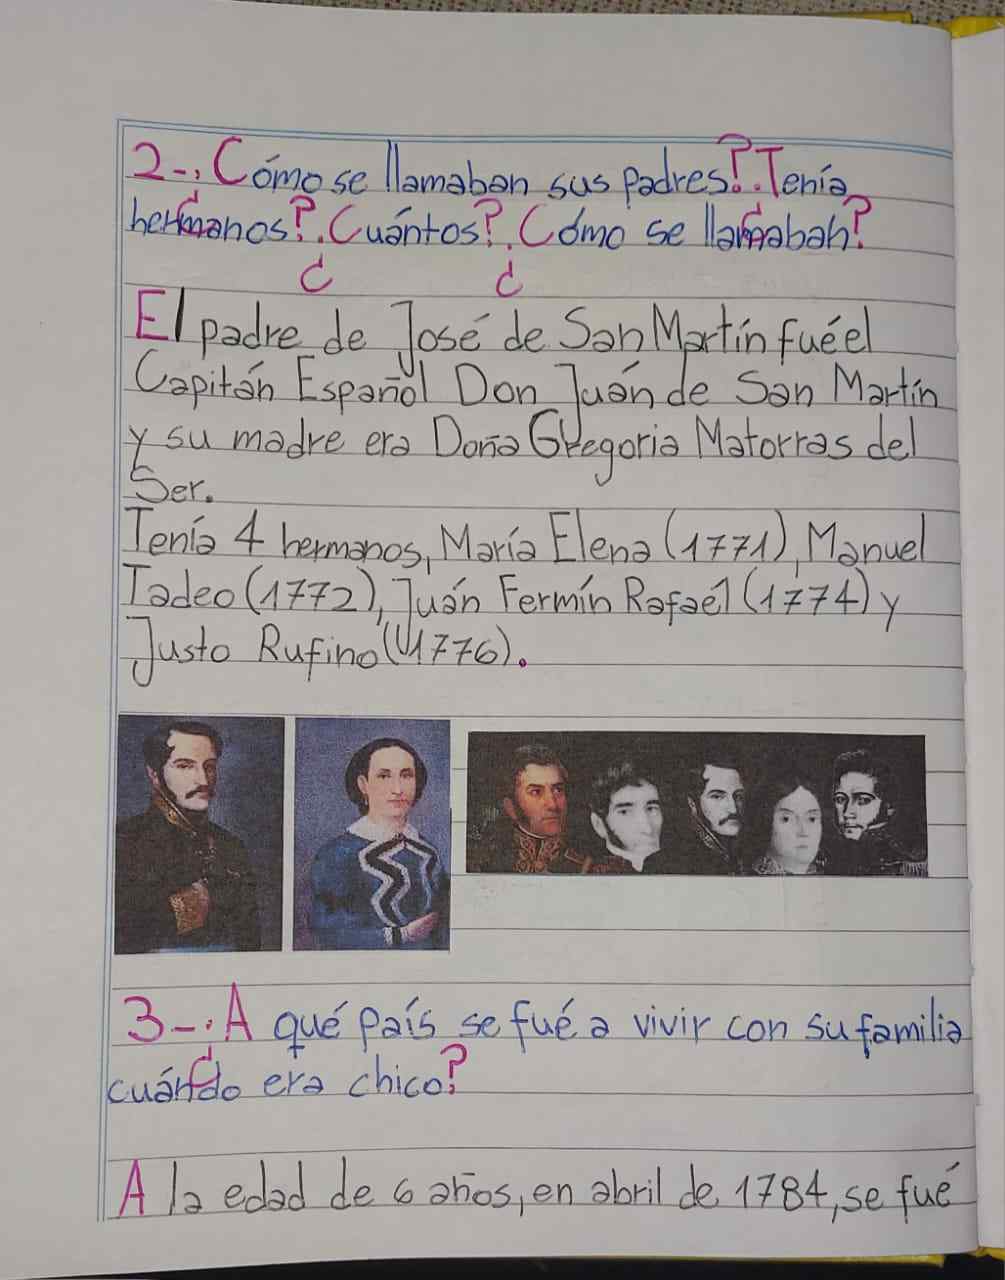 2-. ¿Cómo se llamaban sus padres? ¿Tenía
hermanos? ¿Cuántos? ¿Cómo se llamaban?
El padre de José de San Martín fué el
Capitán Español Don Juán de San Martín
y su madre era Doña Gregoria Matorras del
Ser.
Tenía 4 hermanos, María Elena (1771), Manuel
Tadeo (1772), Juán Fermín Rafaél (1774) y
Justo Rufino (1776).
3-. ¿A qué país se fué a vivir con su familia
cuándo era chico?
A la edad de 6 años, en abril de 1784, se fué